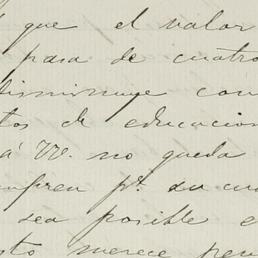 que el valor
pasa de cuatro
disminuye con
tos de educacion
á VV. no queda
pr. su cu
sea posible e
sto merece pen